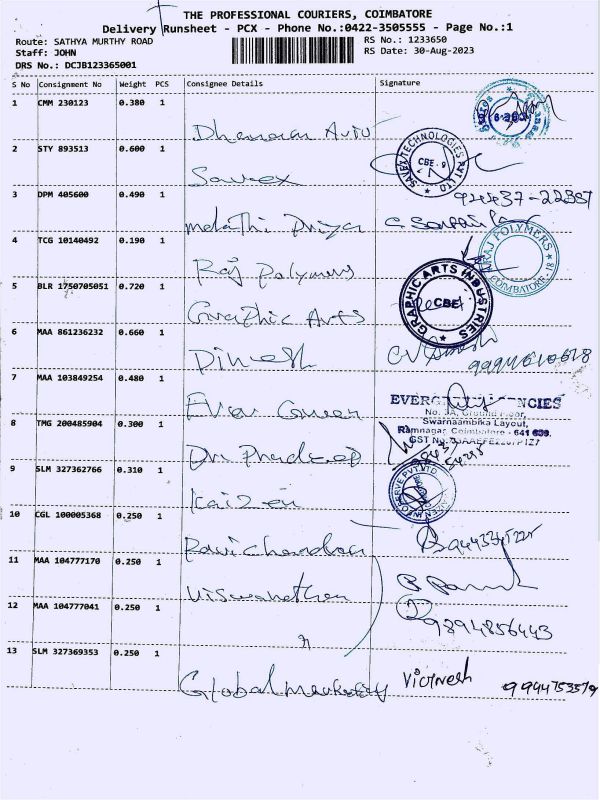 THE PROFESSIONAL COURIERS, COIMBATORE
Delivery Runsheet - PCX - Phone No.:0422-3505555 - Page No.:1
Route: SATHYA MURTHY ROAD
RS No.: 1233650
Staff: JOHN
RS Date: 30-Aug-2023
DRS No.: DCJB123365001
S No Consignment No Weight PCS Consignee Details Signature
1 CMM 230123 0.380 1
Dhanaram Auto
2 STY 893513 0.600 1
Savex
SAVEX TECHNOLOGIES PVT LTD
CBE - 9
3 DPM 405600 0.490 1
94437-22387
Malathi Priya
4 TCG 10140492 0.190 1
Raj Polymers
RAJ POLYMERS
COIMBATORE - 18
5 BLR 1750705051 0.720 1
Graphic Arts
GRAPHIC ARTS INDUSTRIES
CBE
6 MAA 861236232 0.660 1
Dinesh
7 MAA 103849254 0.480 1
Ever Green
No. 3A, Ground Floor,
Swarnaambika Layout,
Ramnagar, Coimbatore - 641 009.
8 TMG 200485904 0.300 1
Dr Pradeep
9 SLM 327362766 0.310 1
Kaizen
10 CGL 100005368 0.250 1
Ravichandran
11 MAA 104777170 0.250 1
Viswanathan
12 MAA 104777041 0.250 1
"
9894856443
13 SLM 327369353 0.250 1
Global marketing Vignesh